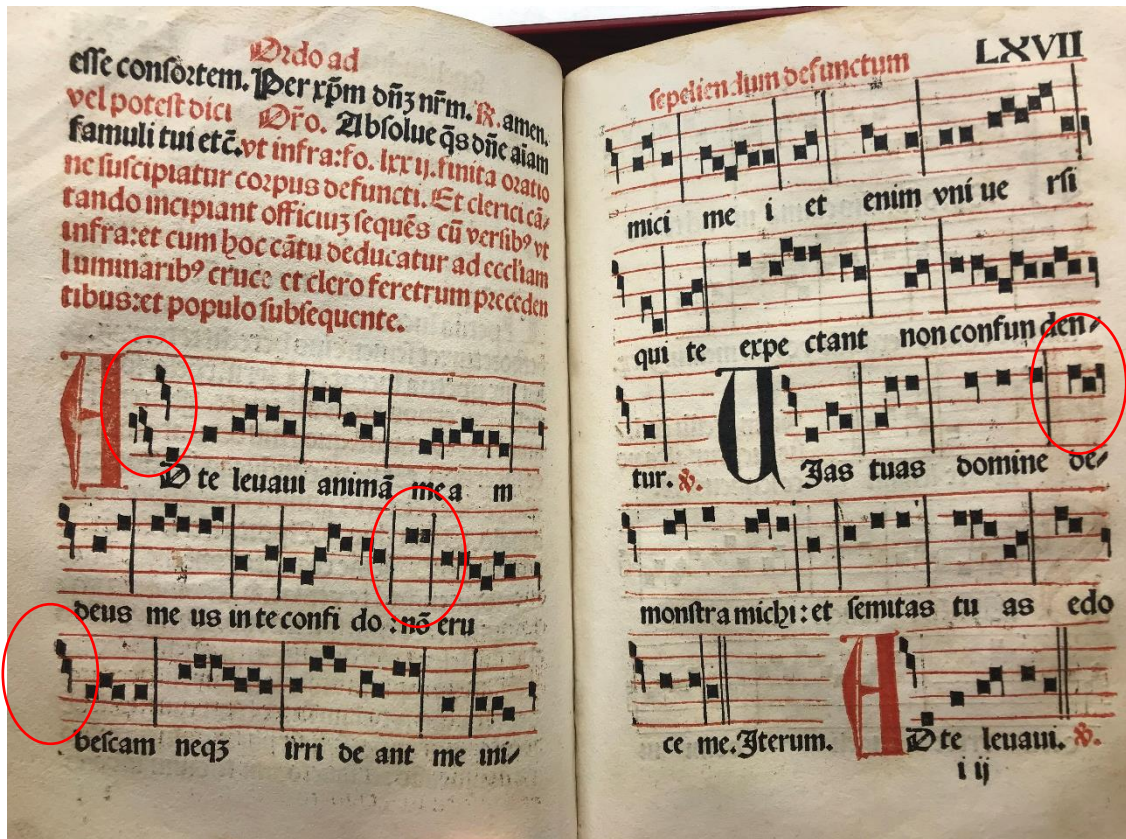 Ordo ad
esse consortem. Per xp̄m dn̄ꝫ nr̄m. ℟. amen.
vel potest dici Or̄o. Absolue q̄s dn̄e aīam
famuli tui etc̄. vt infra: fo. lxx ij. finita oratio
ne suscipiatur corpus defuncti. Et clerici cā/
tando incipiant officiuꝫ sequēs cū versibꝰ vt
infra: et cum hoc cātu deducatur ad eccliam
luminaribꝰ cruce et clero feretrum preceden
tibus: et populo subsequente.
AD te leuaui animā me a m
deus me us in te confi do : nō eru
bescam neqꝫ irri de ant me ini/
sepeliendum defunctum LXVII
mici me i et enim vni ue rsi
qui te expe ctant non confun den/
tur. ℣. UJas tuas domine de/
monstra michi : et semitas tu as edo
ce me. Jterum. AD te leuaui. ℣.
i ij